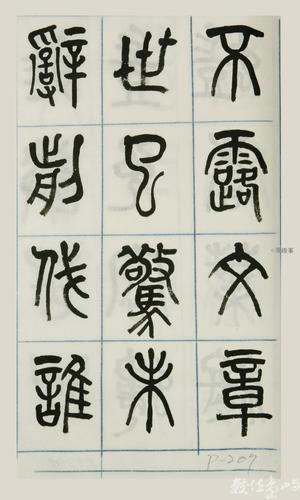 不露文章
世已驚未
辭剪伐誰
P-207